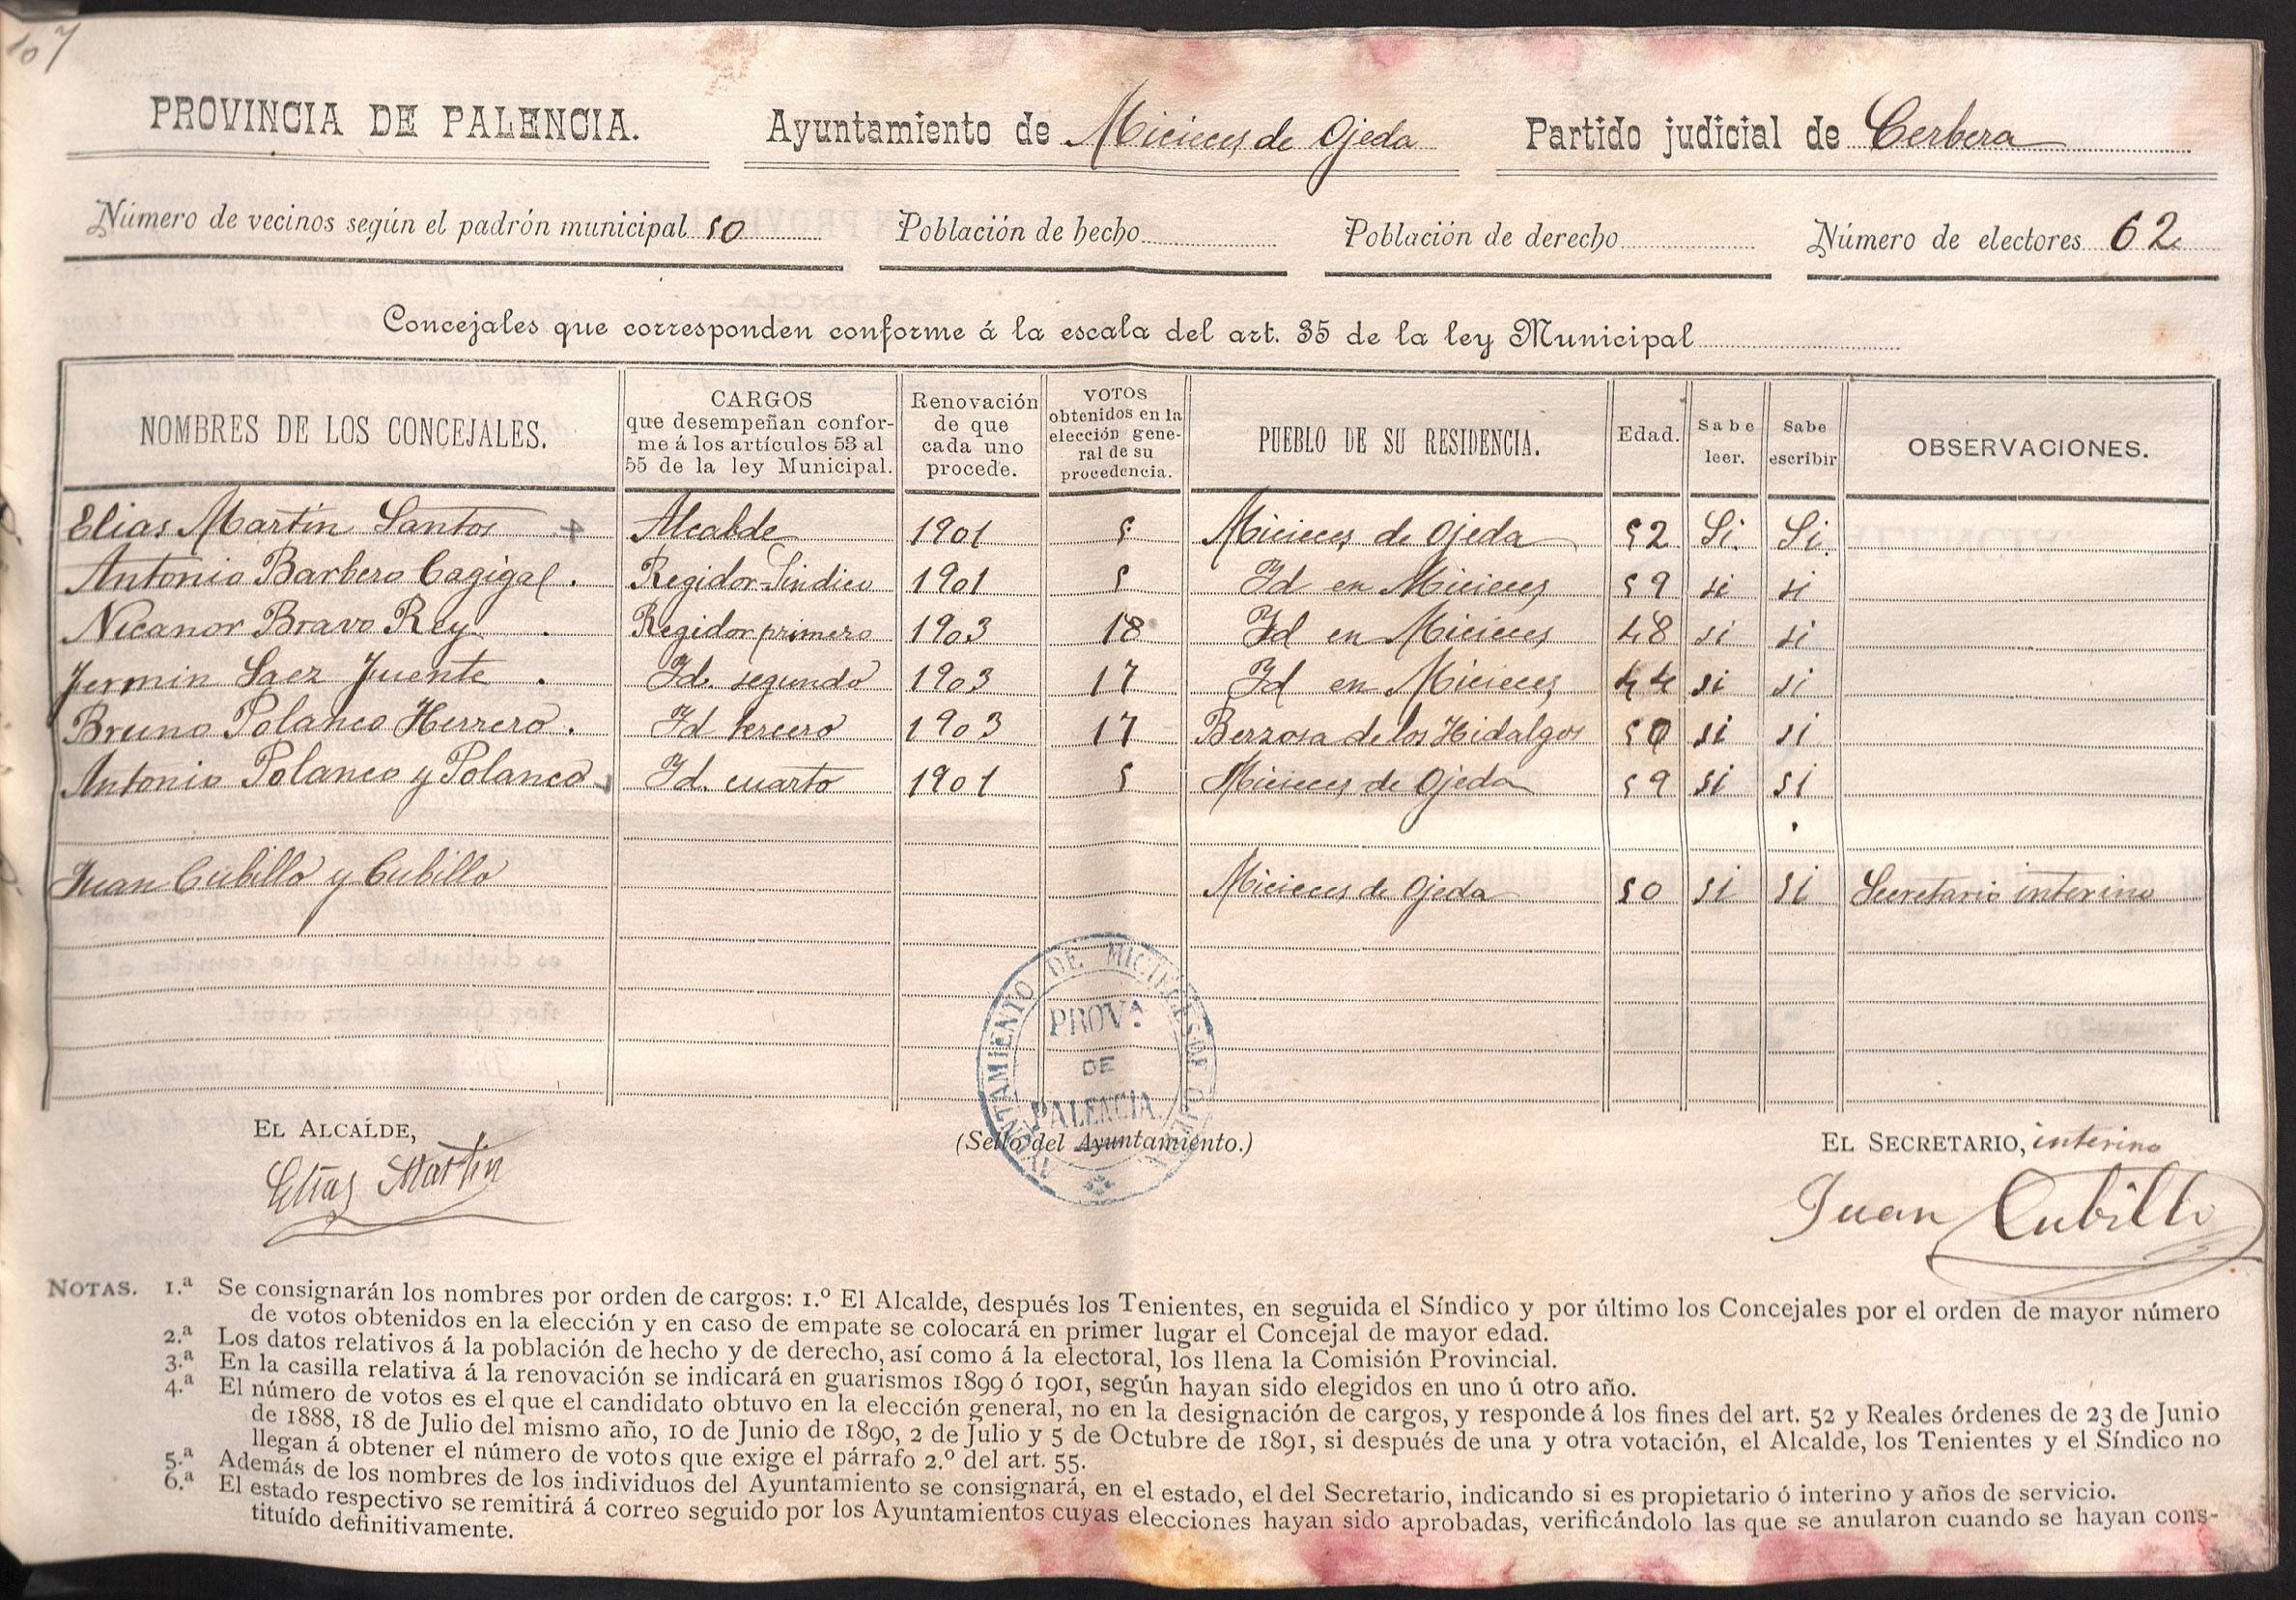 107
PROVINCIA DE PALENCIA. Ayuntamiento de Micieces de Ojeda Partido judicial de Cerbera
Número de vecinos según el padrón municipal 50 Población de hecho Población de derecho Número de electores 62
Concejales que corresponden conforme á la escala del art. 35 de la ley Municipal
NOMBRES DE LOS CONCEJALES. CARGOS que desempeñan conforme á los artículos 53 al 55 de la ley Municipal. Renovación de que cada uno procede. VOTOS obtenidos en la elección general de su procedencia. PUEBLO DE SU RESIDENCIA. Edad. Sabe leer. Sabe escribir OBSERVACIONES.
Elias Martin Santos Alcalde 1901 5 Micieces de Ojeda 52 Si. Si.
Antonio Barbero Cagigal. Regidor Sindico 1901 5 Id en Micieces 59 si si
Nicanor Bravo Rey. Regidor primero 1903 18 Id en Micieces 48 si si
Fermin Saez Fuente. Id. segundo 1903 17 Id en Micieces 44 si si
Bruno Polanco Herrero. Id tercero 1903 17 Berzosa de los Hidalgos 50 si si
Antonio Polanco y Polanco Id. cuarto 1901 5 Micieces de Ojeda 59 si si
Juan Cubillo y Cubillo Micieces de Ojeda 50 si si Secretario interino
AYUNTAMIENTO DE MICIECES DE OJEDA
PROVA
DE
PALENCIA
EL ALCALDE, (Sello del Ayuntamiento.) EL SECRETARIO, interino
Elias Martin Juan Cubillo
NOTAS. 1.ª Se consignarán los nombres por orden de cargos: 1.º El Alcalde, después los Tenientes, en seguida el Síndico y por último los Concejales por el orden de mayor número
de votos obtenidos en la elección y en caso de empate se colocará en primer lugar el Concejal de mayor edad.
2.ª Los datos relativos á la población de hecho y de derecho, así como á la electoral, los llena la Comisión Provincial.
3.ª En la casilla relativa á la renovación se indicará en guarismos 1899 ó 1901, según hayan sido elegidos en uno ú otro año.
4.ª El número de votos es el que el candidato obtuvo en la elección general, no en la designación de cargos, y responde á los fines del art. 52 y Reales órdenes de 23 de Junio
de 1888, 18 de Julio del mismo año, 10 de Junio de 1890, 2 de Julio y 5 de Octubre de 1891, si después de una y otra votación, el Alcalde, los Tenientes y el Síndico no
llegan á obtener el número de votos que exige el párrafo 2.º del art. 55.
5.ª Además de los nombres de los individuos del Ayuntamiento se consignará, en el estado, el del Secretario, indicando si es propietario ó interino y años de servicio.
6.ª El estado respectivo se remitirá á correo seguido por los Ayuntamientos cuyas elecciones hayan sido aprobadas, verificándolo las que se anularon cuando se hayan cons-
tituído definitivamente.